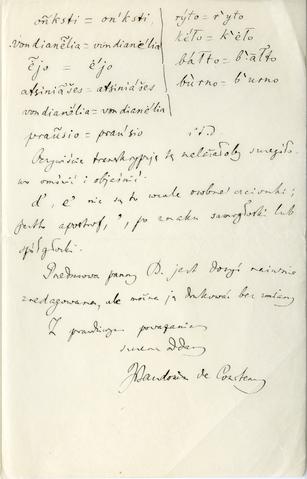 on̓ksti = on̓ksti
vondianẽlia = vondianẽlia
ẽjo = ẽjo
atsiniášes = atsiniášes
vondianẽlia = vondianẽlia
praũsio = praũsio
rýto = r'yto
kẽto = k'ẽto
báłto = b'ałto
bùrno = b'urno
i t. d.
Oczywiście transkrypcję tę należałoby szczegóło-
wo omówić i objaśnić.
a', e' nie są to wcale osobne czcionki;
jest to apostrof, ', po znaku samogłoski lub
spółgłoski.
Przedmowa panny D. jest dosyć naiwnie
zredagowana, ale można ją drukować bez zmiany
Z prawdziwym poważaniem
J Baudouin de Courtenay